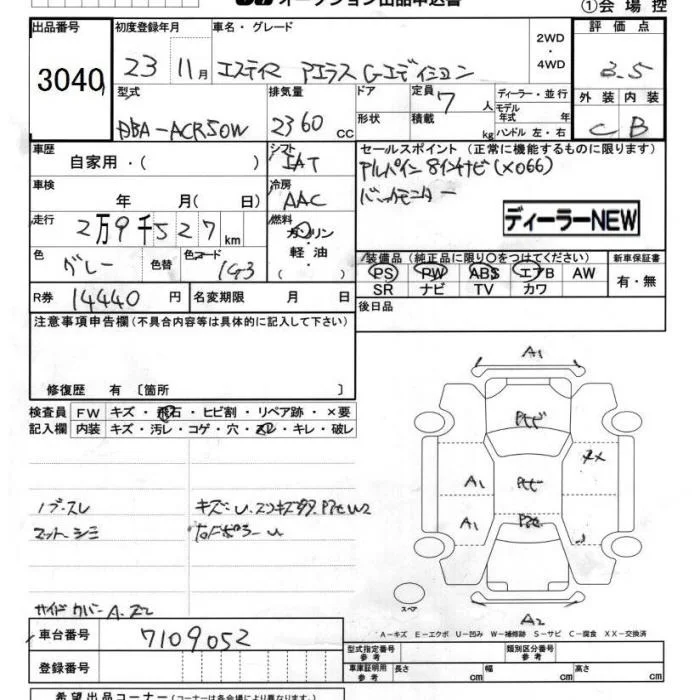 オークション出品申込書
①会場控
出品番号
3040
初度登録年月
23 11月
車名・グレード
エスティマ アエラス Gエディション
2WD
・
4WD
評価点
3.5
型式
DBA-ACR50W
排気量
2360 cc
ドア
形状
定員
7人
積載
kg
ディーラー・並行
モデル年式 年
ハンドル 左・右
外装 内装
C B
車歴
自家用・( )
シフト
IAT
セールスポイント (正常に機能するものに限ります)
アルパイン 8インチナビ(X066)
バックモニター
ディーラーNEW
車検
年 月( 日)
冷房
AAC
走行
2万9千527km
燃料
ガソリン
・
軽油
( )
色
グレー
色替
色コード
1G3
装備品 (純正品に限り○をつけてください)
PS PW ABS エアB AW
SR ナビ TV カワ
新車保証書
有・無
R券
14440円
名変期限 月 日
後日品
注意事項申告欄(不具合内容等は具体的に記入して下さい)
修復歴 有 〔箇所 〕
検査員
記入欄
FW キズ・飛石・ヒビ割・リペア跡・×要
内装 キズ・汚レ・コゲ・穴・スレ・キレ・破レ
ノブ・スレ
マット・シミ
サイドカバー A.
A1
A1
A1
A2
スペア
A-キズ E-エクボ U-凹み W-補修跡 S-サビ C-腐食 XX-交換済
車台番号
7109052
登録番号
型式指定番号
参考
類別区分番号
参考
車庫証明用
参考
長さ cm
幅 cm
高さ cm
希望出品コーナー(コーナーは各会場により異なります。)